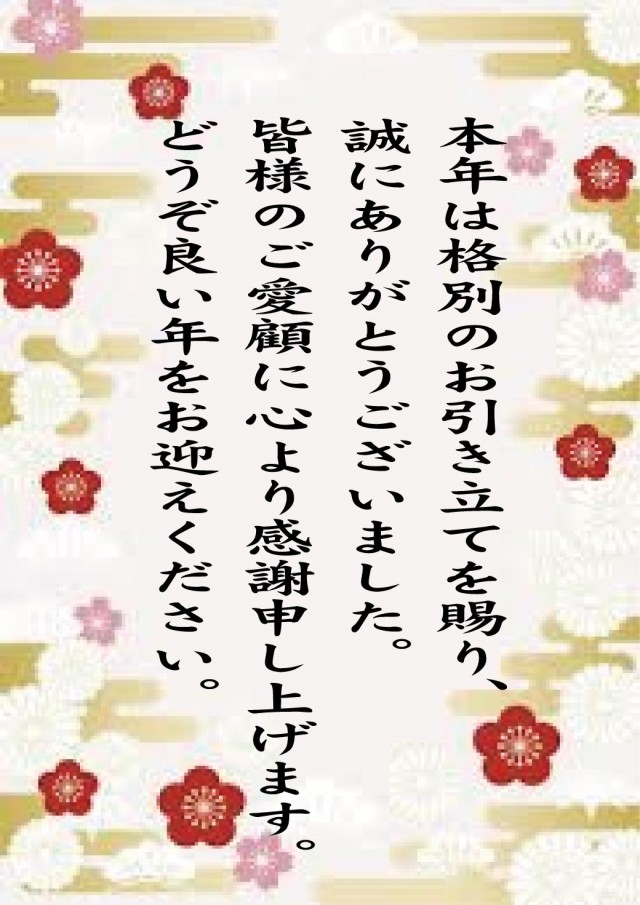 本年は格別のお引き立てを賜り、
誠にありがとうございました。
皆様のご愛顧に心より感謝申し上げます。
どうぞ良い年をお迎えください。